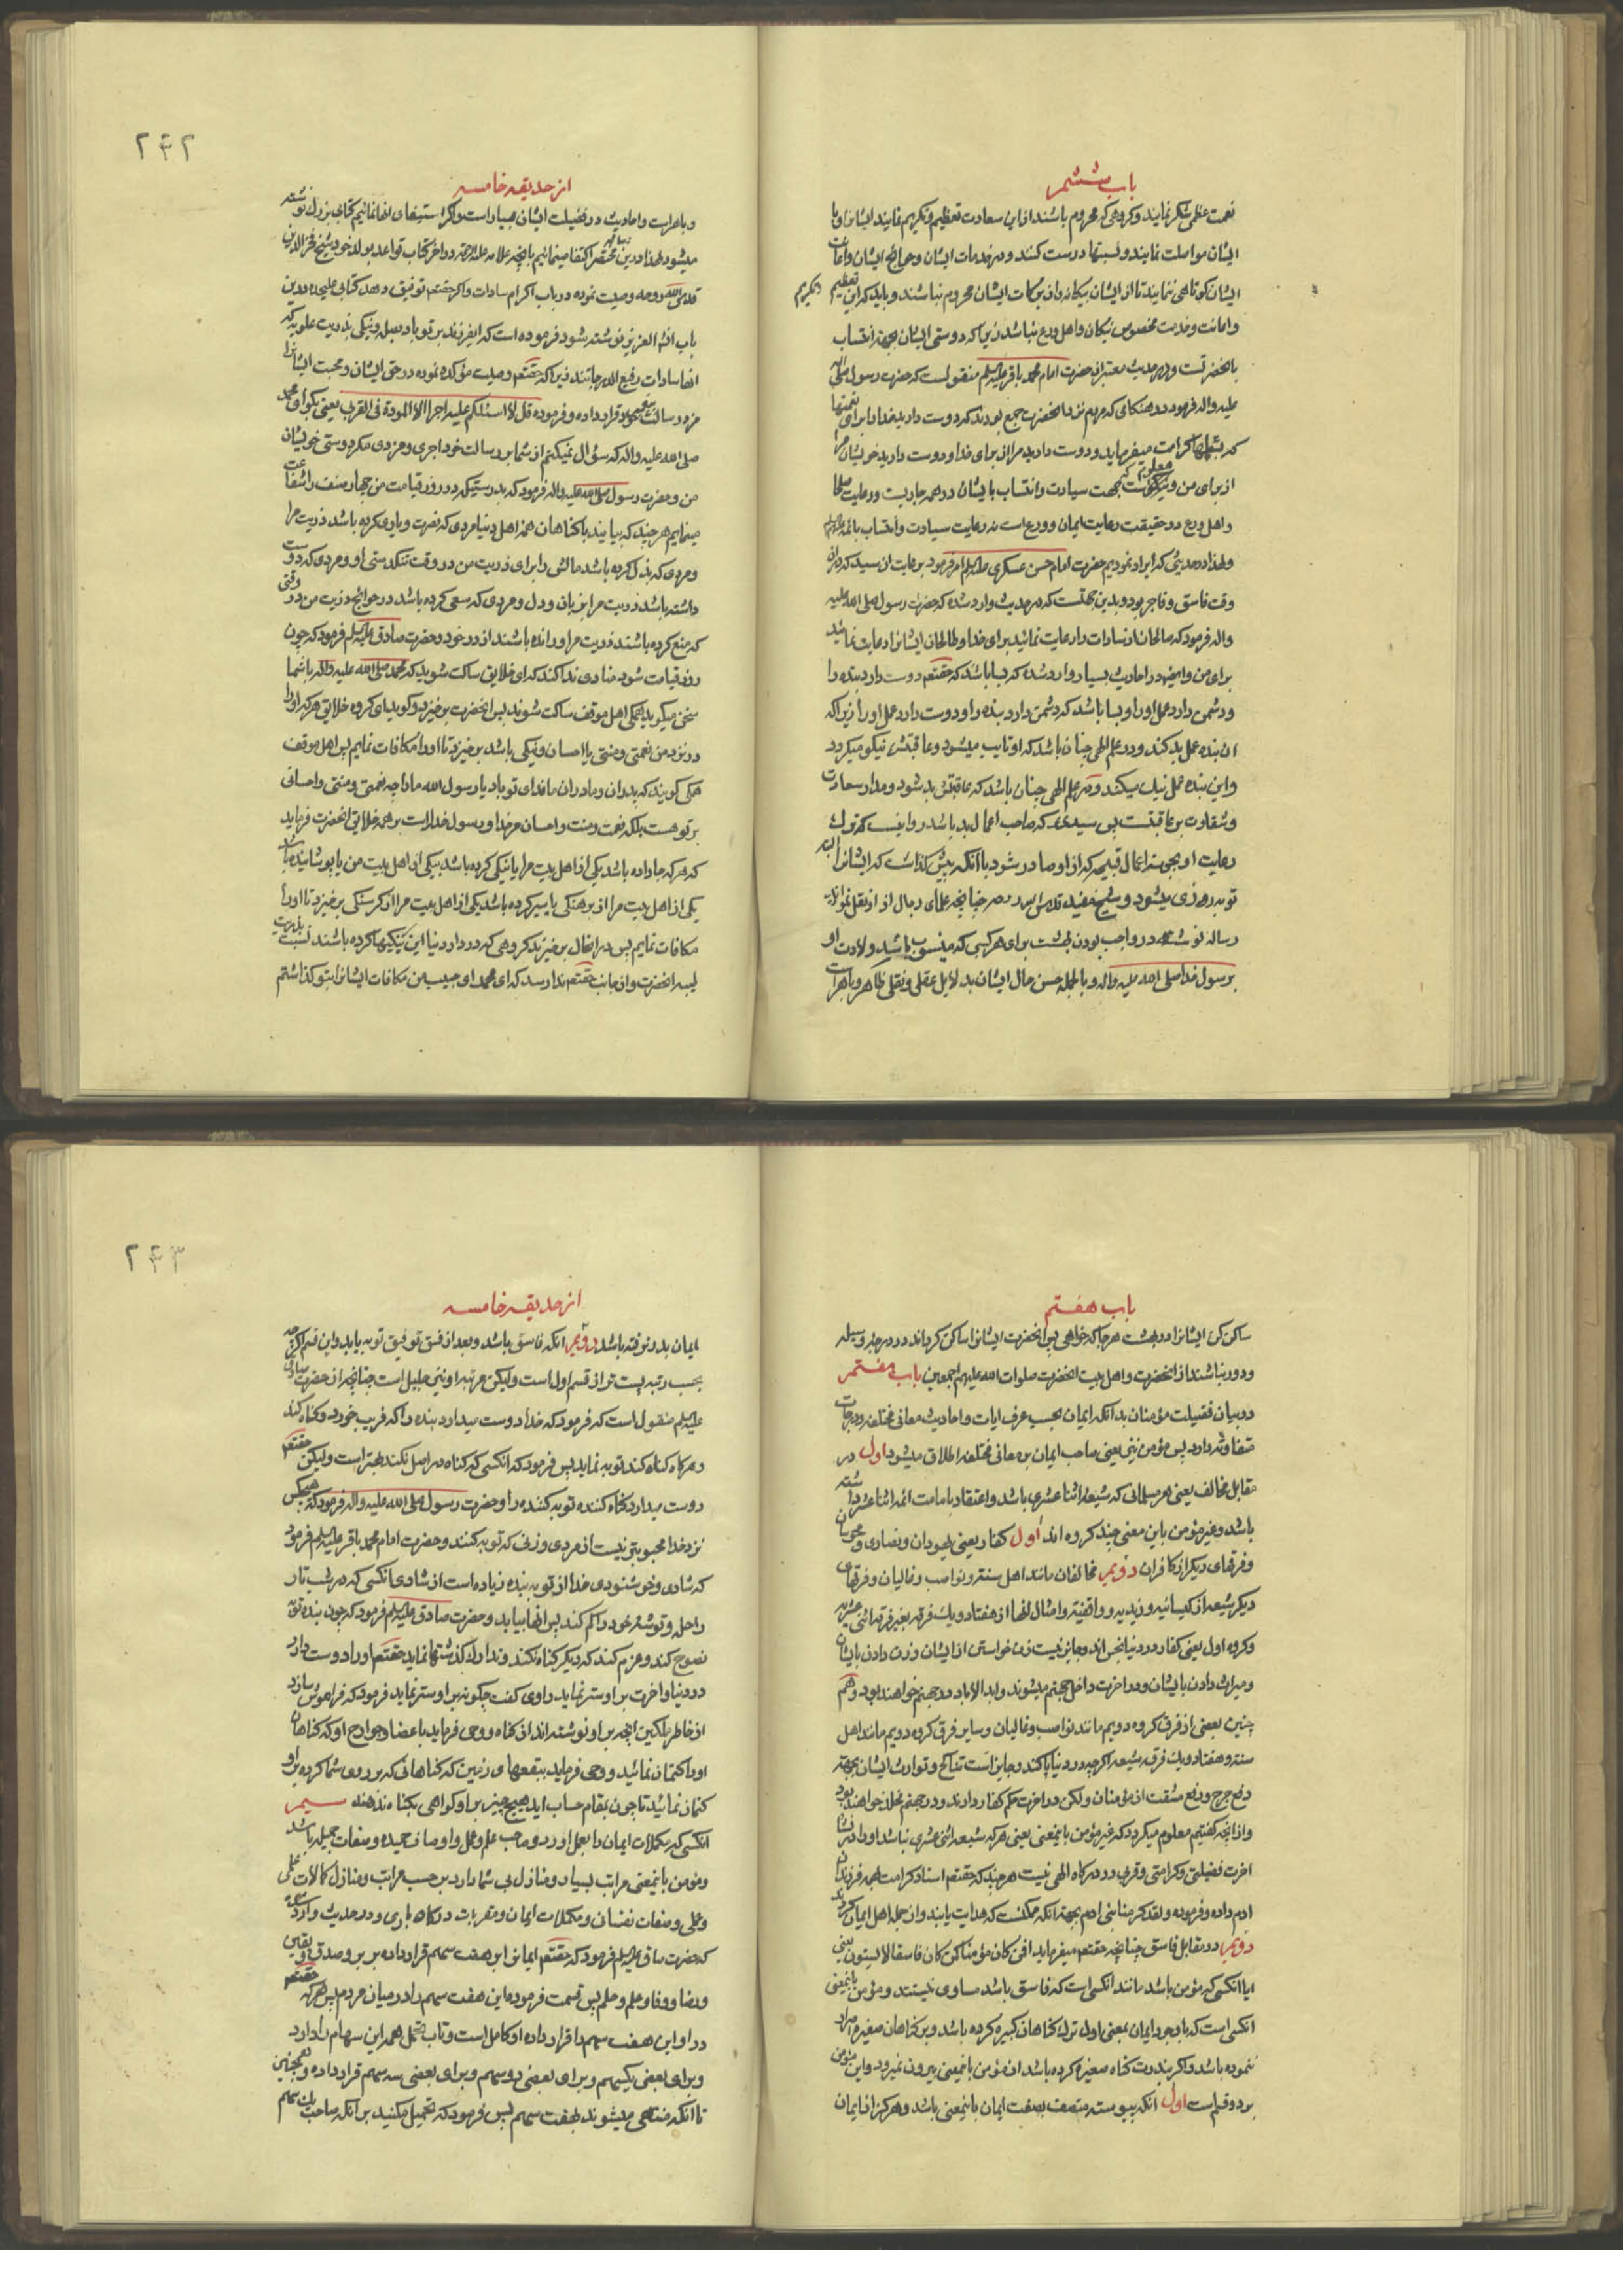 باب ششم
نعمت عظمی شکر نمایند و کروهی که محروم باشند از این سعادت تعظیم و تکریم نمایند ایشانرا و با
ایشان مواصلت نمایند و نسبتها درست کنند و در خدمات ایشان و حوائج ایشان و اعانت
ایشان کوتاهی ننمایند تا از ایشان بیکانه و از برکات ایشان محروم نباشند و باید که این تعظیم و تکریم
و اعانت و خدمت مخصوص نیکان و اهل ورع نباشد زیرا که دوستی ایشان بجهة انتساب
بانحضرتست و در حدیث معتبر از حضرت امام محمد باقر علیه السلم منقولست که حضرت رسول صلی الله
علیه واله فرمود در هنکامی که مردم نزد انحضرت جمع بودند که دوست دارید خدا را برای نعمتها
که بشما کرامت میفرماید و دوست دارید مرا از برای خدا و دوست دارید خویشان مرا
از برای من و معلوم است که جهت سیادت و انتساب بایشان در همه جاریست و رعایت صلحا
و اهل ورع در حقیقت رعایت ایمان و ورع است نه رعایت سیادت و انتساب بائمه
و لهذا در حدیثی که ایراد نمودیم حضرت امام حسن عسکری علیه السلم امر فرمود برعایت ان سید که در ان
وقت فاسق و فاجر بود و بدین جهتست که در حدیث وارد شده که حضرت رسول صلی الله علیه
واله فرمود که صالحان از سادات را رعایت نمائید برای خدا و طالحان ایشانرا رعایت نمائید
برای من و ایضا در احادیث بسیار وارد شده که بسا باشد که حقتعم دوست دارد بنده را
و دشمن دارد عمل او را و بسا باشد که دشمن دارد بنده را و دوست دارد عمل او را زیرا که
ان بنده عمل بد کند و در علم الهی چنان باشد که او تایب میشود و عاقبتش نیکو میکردد
و این بنده عمل نیک میکند و در علم الهی چنان باشد که عاقبتش بد شود و مدار سعادت
و شقاوت بر عاقبتست پس سیدی که صاحب اعمال بد باشد روا نیست که ترک
رعایت او بجهت اعمال قبیحه که از او صادر شود با انکه پیش کذاشت که ایشانرا البته
توبه روزی میشود و شیخ مفید قدس سره چنانچه علمای رجال از او نقل نموده‌اند
رساله نوشته در واجب بودن بهشت برای هر کسی که منسوب باشد ولادت او
برسول خدا صلی الله علیه واله و بالجمله حسن حال ایشان بدلایل عقلی و نقلی ظاهر و باهر است
از حدیقه خامسه
و باهر است و احادیث در فضیلت ایشان بسیار است و اکر استیفای انها نمائیم کتابی بزرک نوشته
میشود لهذا در این مختصر اکتفا مینمائیم بانچه علامه علیه الرحمه در اخر کتاب قواعد بولد خود شیخ فخر الدین
قدس الله روحه وصیت نموده در باب اکرام سادات و اکر حقتعم توفیق دهد کتابی علیحده در این
باب انشاء العزیز نوشته شود فرموده است که ای فرزند بر تو باد بصله و نیکی بذریت علویه که
انها سادات رفیع الدرجاتند زیرا که حقتعم وصیت مؤکده نموده در حق ایشان و محبت ایشانرا
مزد رسالت پیغمبر خود قرار داده و فرموده قل لا اسئلکم علیه اجرا الا المودة فی القربی یعنی بکو ای محمد
صلی الله علیه واله که سؤال نمیکنم از شما بر رسالت خود اجری و مزدی مکر دوستی خویشان
من و حضرت رسول صلی الله علیه واله فرمود که بدرستیکه در روز قیامت من چهار صنف را شفاعت
مینمایم هر چند که بیایند با کناهان همه اهل دنیا مردی که نصرت و یاری کرده باشد ذریت مرا
و مردی که بذل کرده باشد مالش را برای ذریت من در وقت تنکدستی او و مردی که دوست
داشته باشد ذریت مرا بزبان و دل و مردی که سعی کرده باشد در حوائج ذریت من در وقتی
که منع کرده باشند ذریت مرا و رانده باشند از در خود و حضرت صادق علیه السلم فرمود که چون
روز قیامت شود منادی ندا کند که ای خلایق ساکت شوید که محمد صلی الله علیه واله با شما
سخن میکوید جمله اهل موقف ساکت شوند پس انحضرت برخیزد و کوید ای کروه خلایق هر که او را
در نزد من نعمتی و منتی یا احسان و نیکی باشد برخیزد تا او را مکافات نمایم پس اهل موقف
همکی کویند که پدران و مادران ما فدای تو باد یا رسول الله ما را چه نعمتی و منتی و احسانی
بر تو هست بلکه نعمت و منت و احسان مر خدا و رسول خدا راست بر همه خلایق انحضرت فرماید
که هر که جا داده باشد یکی از اهل بیت مرا یا نیکی کرده باشد بیکی از اهل بیت من یا پوشانیده باشد
یکی از اهل بیت مرا از برهنکی یا سیر کرده باشد یکی از اهل بیت مرا از کرسنکی برخیزد تا او را
مکافات نمایم پس در انحال برخیزند کروهی که در دار دنیا این نیکیها کرده باشند نسبت بذریت
ان حضرت و از جانب حقتعم ندا رسد که ای محمد ای حبیب من مکافات ایشانرا بتو کذاشتم
باب هفتم
ساکن کن ایشانرا در بهشت هر جا که خواهی پس انحضرت ایشانرا ساکن کرداند در درجه وسیله
و دور نباشند از انحضرت و اهل بیت انحضرت صلوات الله علیهم اجمعین باب هفتم
در بیان فضیلت مؤمنان بدانکه ایمان بحسب عرف ایات و احادیث معانی مختلفه و درجات
متفاوته دارد پس مؤمن نیز یعنی صاحب ایمان بر معانی مختلفه اطلاق میشود اول در
مقابل مخالف یعنی هر مسلمانی که شیعه اثنا عشری باشد و اعتقاد بامامت ائمه اثنا عشر داشته
باشد و غیر مؤمن باین معنی چند کروه اند اول کفار یعنی یهودان و نصاری و مجوسیان
و فرقهای دیکر از کافران دویم مخالفان مانند اهل سنت و نواصب و غالیان و فرقهای
دیکر شیعه از کیسانیه و زیدیه و واقفیه و امثال انها از هفتاد و یک فرقه بغیر فرقه اثنی عشریه
و کروه اول یعنی کفار در دنیا نجس اند و جایز نیست زن خواستن از ایشان و زن دادن بایشان
و میراث دادن بایشان و در اخرت داخل جهنم میشوند و ابد الاباد در جهنم خواهند بود و هم
چنین بعضی از فرق کروه دویم مانند نواصب و غالیان و سایر فرق کروه دویم مانند اهل
سنت و هفتاد و یک فرقه شیعه اکرچه در دنیا پاکند و جایز است تناکح و توارث ایشان بجهة
دفع حرج و رفع مشقت از مؤمنان ولکن در اخرت حکم کفار دارند و در جهنم مخلد خواهند بود
و از انچه کفتیم معلوم میکردد که غیر مؤمن باینمعنی یعنی هر که شیعه اثنی عشری نباشد او را در نشاه
اخرت فضیلتی و کرامتی و قربی در درکاه الهی نیست هر چند که حقتعم اسناد کرامت بهمه فرزندان
ادم داده و فرموده و لقد کرمنا بنی ادم بجهة انکه ممکنست که هدایت یابند و از جمله اهل ایمان کردند
دویم در مقابل فاسق چنانچه حقتعم میفرماید افمن کان مؤمنا کمن کان فاسقا لا یستون یعنی
ایا انکسی که مؤمن باشد مانند انکسی است که فاسق باشد مساوی نیستند و مؤمن باینمعنی
انکسی است که با وجود ایمان بمعنی اول ترک کناهان کبیره کرده باشد و بر کناهان صغیره اصرار
ننموده باشد و اکر بندرت کناه صغیره کرده باشد از مؤمن باینمعنی بیرون نمیرود و این مؤمن
بر دو قسم است اول انکه پیوسته متصف بصفت ایمان باینمعنی باشد و هرکز از ایمان
از حدیقه خامسه
ایمان بدر نرفته باشد دویم انکه فاسق باشد و بعد از فسق توفیق توبه بیابد و این قسم اکرچه
بحسب رتبه پست تر از قسم اول است ولیکن مرتبه او نیز جلیل است چنانچه از حضرت صادق
علیه السلم منقول است که فرمود که خدا دوست میدارد بنده را که فریب خورد و کناه کند
و هرکاه کناه کند توبه نماید پس فرمود که انکسی که کناه در اصل نکند بهتر است ولیکن حقتعم
دوست میدارد کناه کننده توبه کننده را و حضرت رسول صلی الله علیه واله فرمود که هیچکس
نزد خدا محبوبتر نیست از مردی و زنی که توبه کنند و حضرت امام محمد باقر علیه السلم فرمود
که شادی و خوشنودی خدا از توبه بنده زیاده است از شادی انکسی که در شب تار
راحله و توشه خود را کم کند پس انها بیابد و حضرت صادق علیه السلم فرمود که چون بنده توبه
نصوح کند و عزم کند که دیکر کناه نکند و تدارک کذشتها نماید حقتعم او را دوست دارد
در دنیا و اخرت بر او ستر نماید راوی کفت چکونه بر او ستر نماید فرمود که فراموش سازد
از خاطر ملکین انچه بر او نوشته اند از کناه و وحی فرماید باعضا و جوارح او که کناهان
او را کتمان نمائید و وحی فرماید ببقعهای زمین که کناهانی که بر روی شما کرده بر او
کتمان نمائید تا چون بمقام حساب اید هیچ چیز بر او کواهی بکناه ندهند سیم
انکسی که مکملات ایمان را بعمل اورد و صاحب علم و عمل و اوصاف حمیده و صفات جمیله باشد
و مؤمن باینمعنی مراتب بسیار و منازل بی شمار دارد بر حسب مراتب و منازل کمالات علمی
و عملی و صفات نفسان و مکملات ایمان و مقربات درکاه باری و در حدیث وارد شده
که حضرت صادق علیه السلم فرمود که حقتعم ایمانرا بر هفت سهم قرار داده بر بر و صدق و یقین
و رضا و وفا و علم و حلم پس قسمت فرموده این هفت سهم را در میان مردم پس هر که حقتعم
در او این هفت سهم را قرار داده او کامل است و تاب تحمل همه این سهام را دارد
و برای بعضی یکسهم و برای بعضی دو سهم و برای بعضی سه سهم قرار داده و همچنین
تا انکه منتهی میشوند بهفت سهم پس فرمود که تحمیل مکنید بر انکه صاحب یک سهم
۲۴۲
۲۴۳